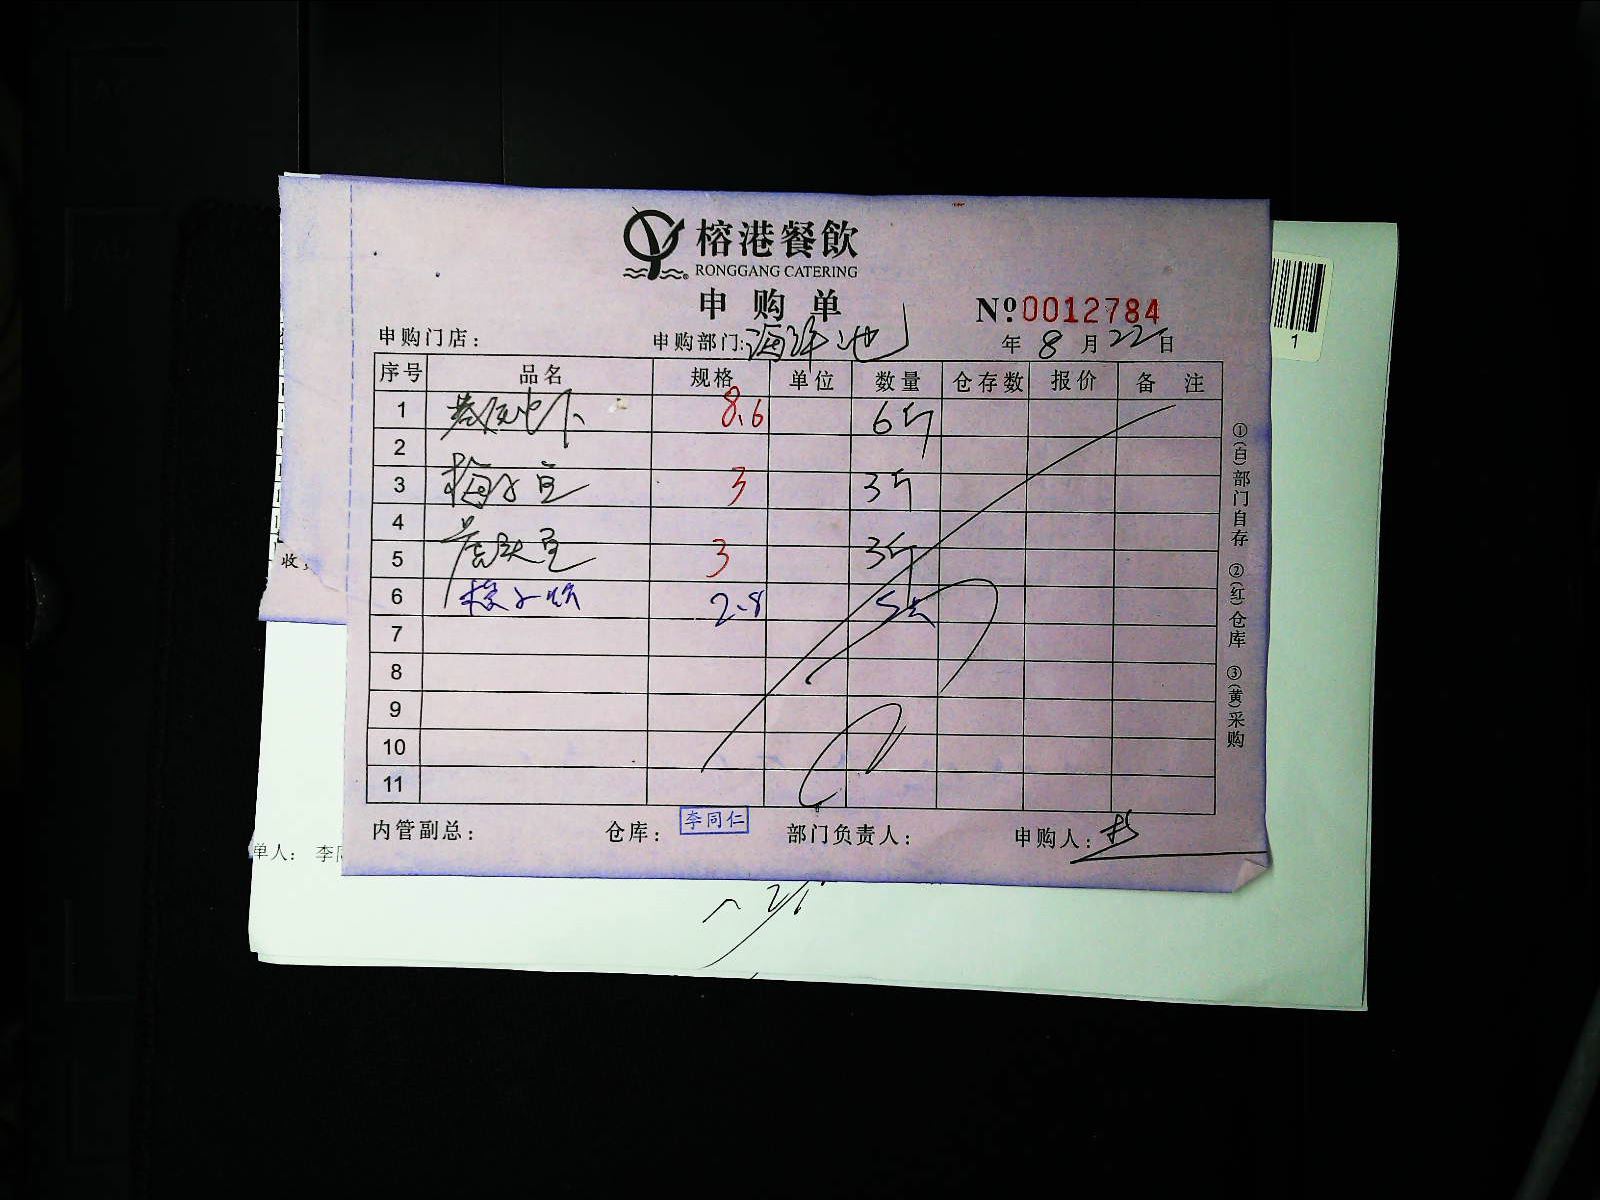 榕港餐飲
RONGGANG CATERING
申购单
Nº0012784
申购门店： 申购部门: 海鲜池 年 8 月 22 日
序号 品名 规格 单位 数量 仓存数 报价 备注
1 8.6 6斤
2
3 3 3斤
4
5 3 3斤
6 2.8
7
8
9
10
11
内管副总： 仓库： 李同仁 部门负责人： 申购人：
①(白)部门自存 ②(红)仓库 ③(黄)采购
1
收
单人： 李